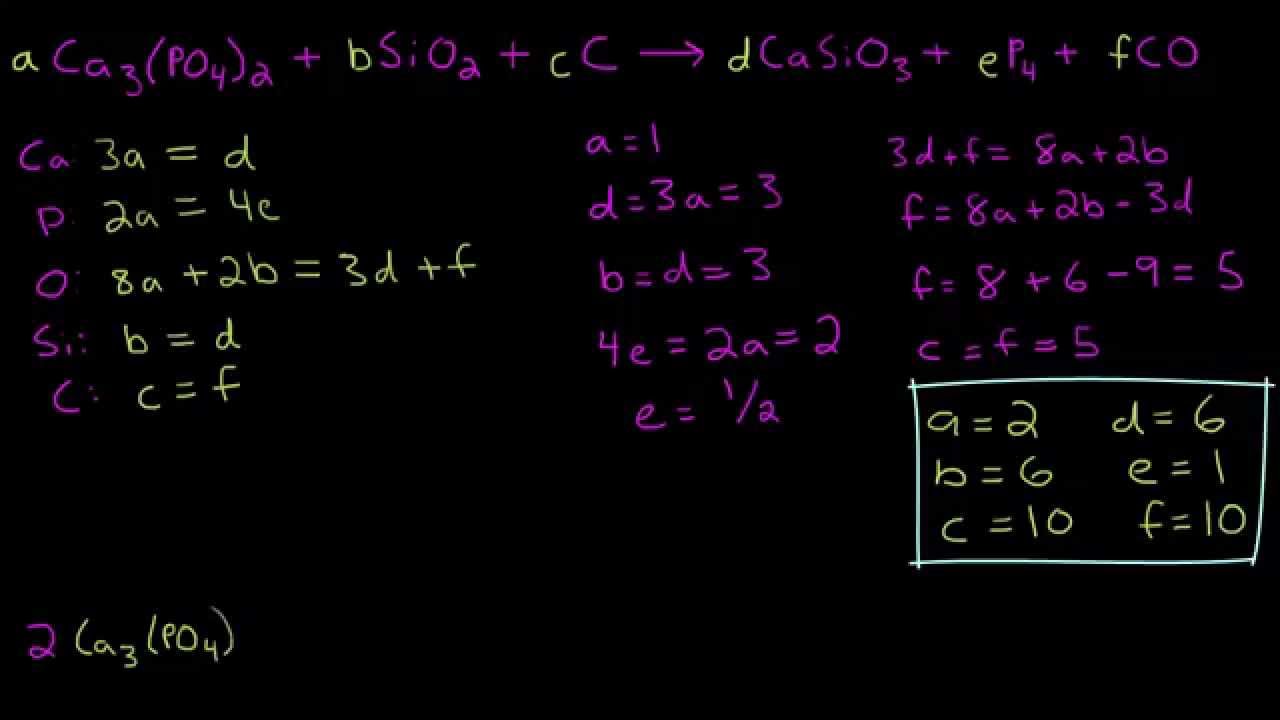 a Ca₃(PO₄)₂ + bSiO₂ + cC → dCaSiO₃ + eP₄ + fCO
Ca: 3a = d
P: 2a = 4e
O: 8a + 2b = 3d + f
Si: b = d
C: c = f
a = 1
d = 3a = 3
b = d = 3
4e = 2a = 2
e = 1/2
3d + f = 8a + 2b
f = 8a + 2b - 3d
f = 8 + 6 - 9 = 5
c = f = 5
a = 2 d = 6
b = 6 e = 1
c = 10 f = 10
2 Ca₃(PO₄)